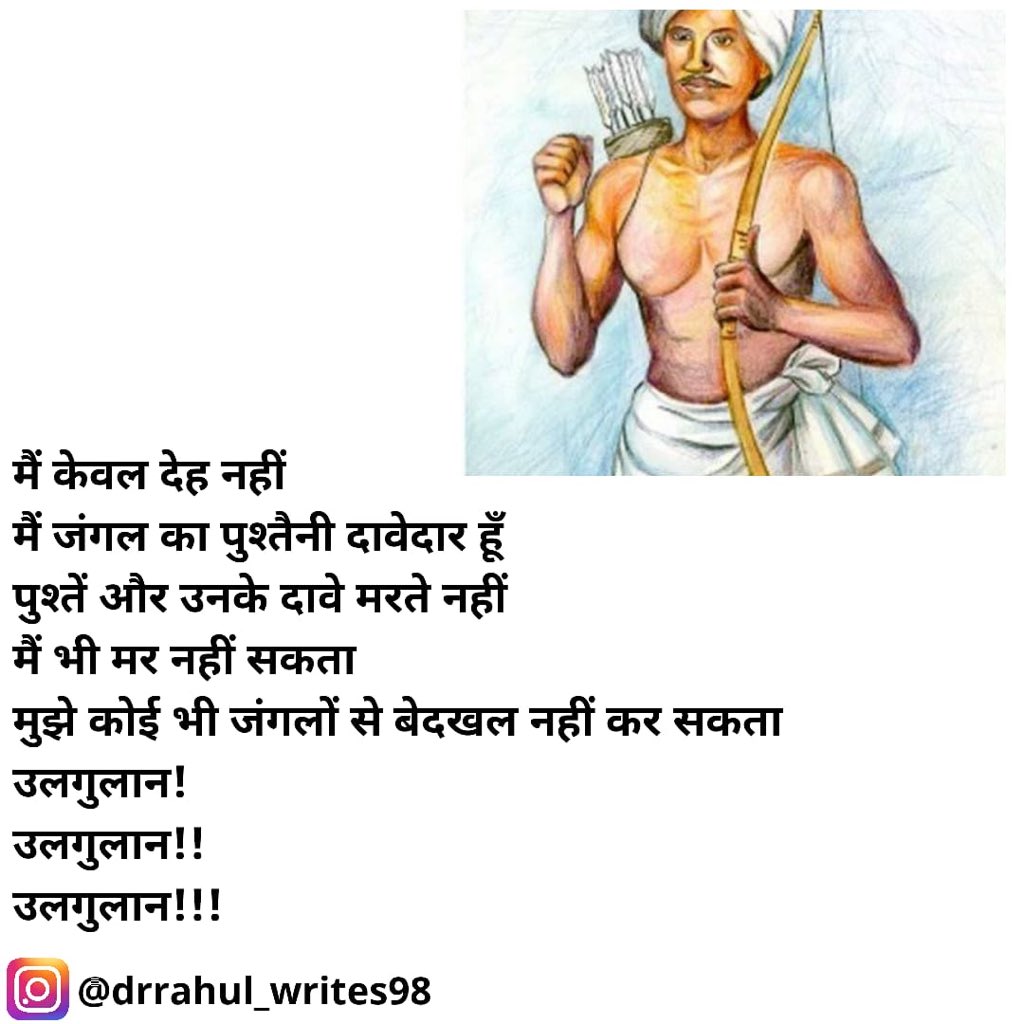 मैं केवल देह नहीं
मैं जंगल का पुश्तैनी दावेदार हूँ
पुश्तें और उनके दावे मरते नहीं
मैं भी मर नहीं सकता
मुझे कोई भी जंगलों से बेदखल नहीं कर सकता
उलगुलान!
उलगुलान!!
उलगुलान!!!
@drrahul_writes98